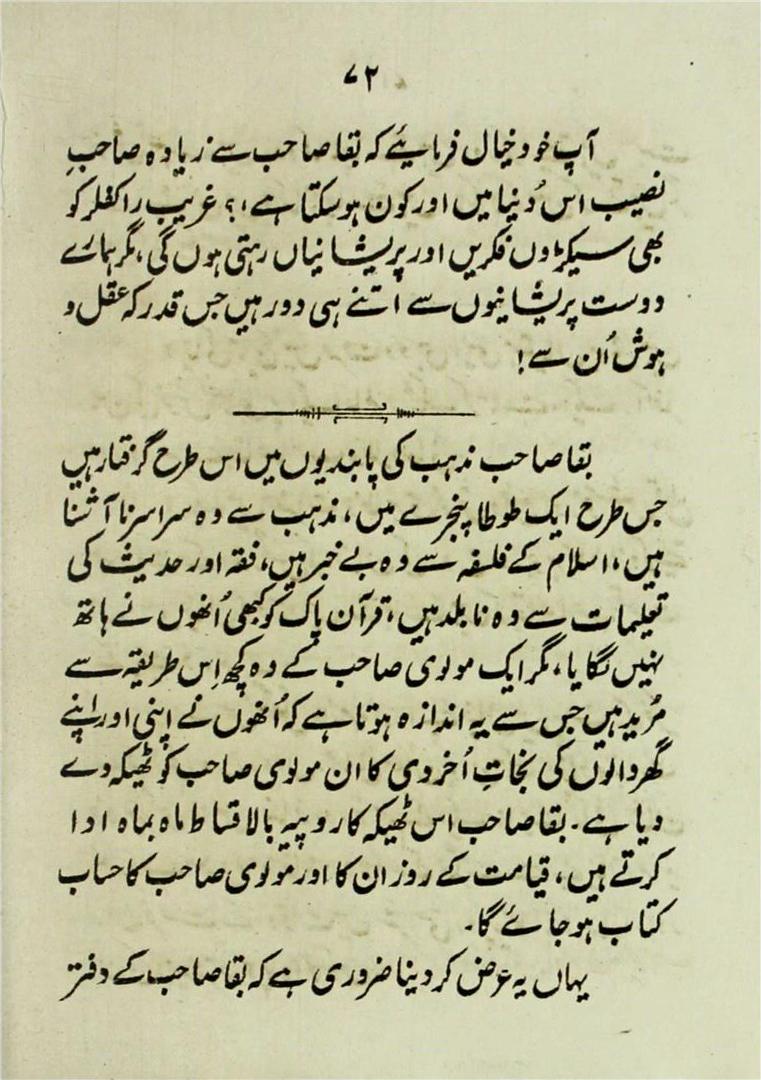 ۷۲
آپ خود خیال فرمایئے کہ بقا صاحب سے زیادہ صاحبِ
نصیب اس دُنیا میں اور کون ہو سکتا ہے،؟ غریب راکفلر کو
بھی سیکڑوں فکریں اور پریشانیاں رہتی ہوں گی، مگر ہمارے
دوست پریشانیوں سے اتنے ہی دور ہیں جس قدر کہ عقل و
ہوش اُن سے!
بقا صاحب مذہب کی پابندیوں میں اس طرح گرفتار ہیں
جس طرح ایک طوطا پنجرے میں، مذہب سے وہ سراسر نا آشنا
ہیں، اسلام کے فلسفہ سے وہ بے خبر ہیں، فقہ اور حدیث کی
تعلیمات سے وہ نابلد ہیں، قرآن پاک کو کبھی اُنھوں نے ہاتھ
نہیں لگایا، مگر ایک مولوی صاحب کے وہ کچھ اِس طریقہ سے
مُرید ہیں جس سے یہ اندازہ ہوتا ہے کہ اُنھوں نے اپنی اور اپنے
گھر والوں کی نجاتِ اُخروی کا ان مولوی صاحب کو ٹھیکہ دے
دیا ہے۔ بقا صاحب اس ٹھیکہ کا روپیہ بالاقساط ماہ بماہ ادا
کرتے ہیں، قیامت کے روز ان کا اور مولوی صاحب کا حساب
کتاب ہو جائے گا۔
یہاں یہ عرض کر دینا ضروری ہے کہ بقا صاحب کے دفتر